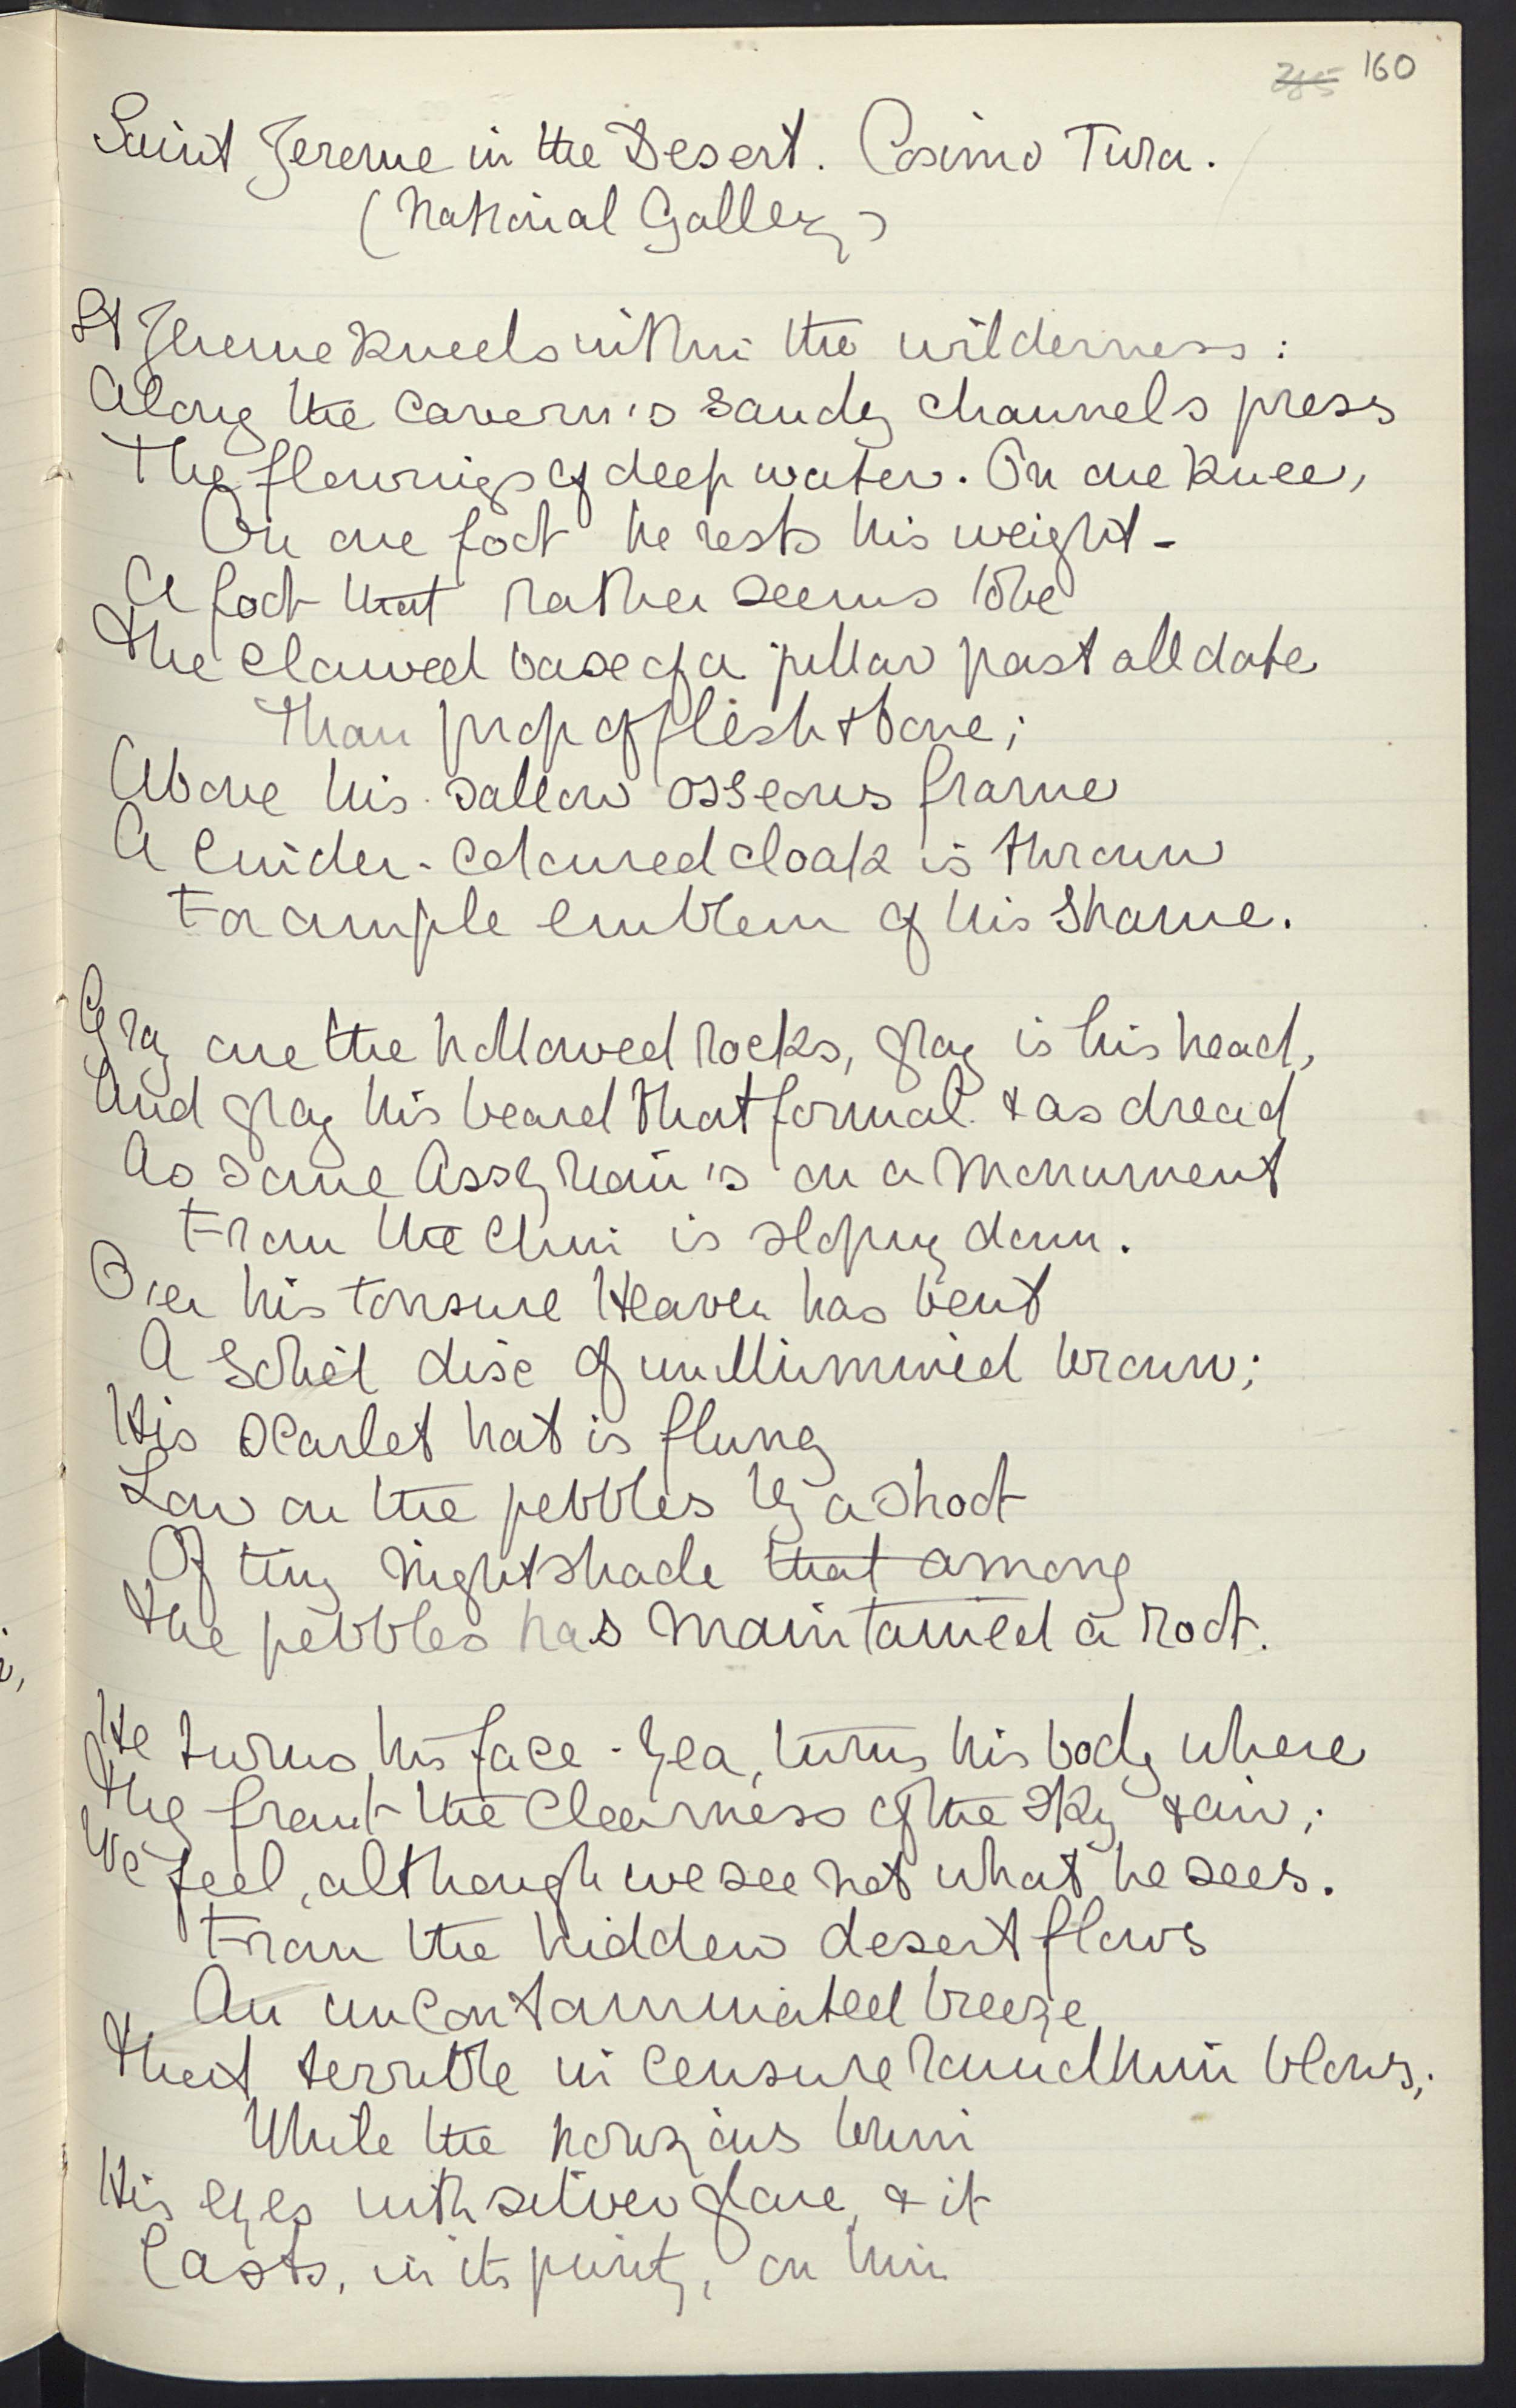 160
Saint Jerome in the Desert. Cosimo Tura.
(National Gallery)
St Jerome kneels within the wilderness:
Along the cavern's sandy channels press
The flowings of deep water. On one knee,
On one foot he rests his weight -
A foot that rather seems to be
The clawed base of a pillar past all date
Than prop of flesh & bone;
Above his sallow osseous frame
A cinder-coloured cloak is thrown
For ample emblem of his shame.
Gray are the hollowed rocks, gray is his head,
And gray his beard that formal & as dread
As some Assyrian's on a monument
From the chin is sloping down.
O'er his tonsure Heaven has bent
A solid disc of unillumined brown;
His scarlet hat is flung
Low on the pebbles by a shoot
Of tiny nightshade that among
The pebbles has maintained a root.
He turns his face - yea, turns his body where
They front the clearness of the sky & air;
We feel, although we see not what he sees.
From the hidden desert flows
An uncontaminated breeze
That terrible in censure round him blows;
While the horizons brim
His eyes with silver glare, & it
Casts, in its purity, on him